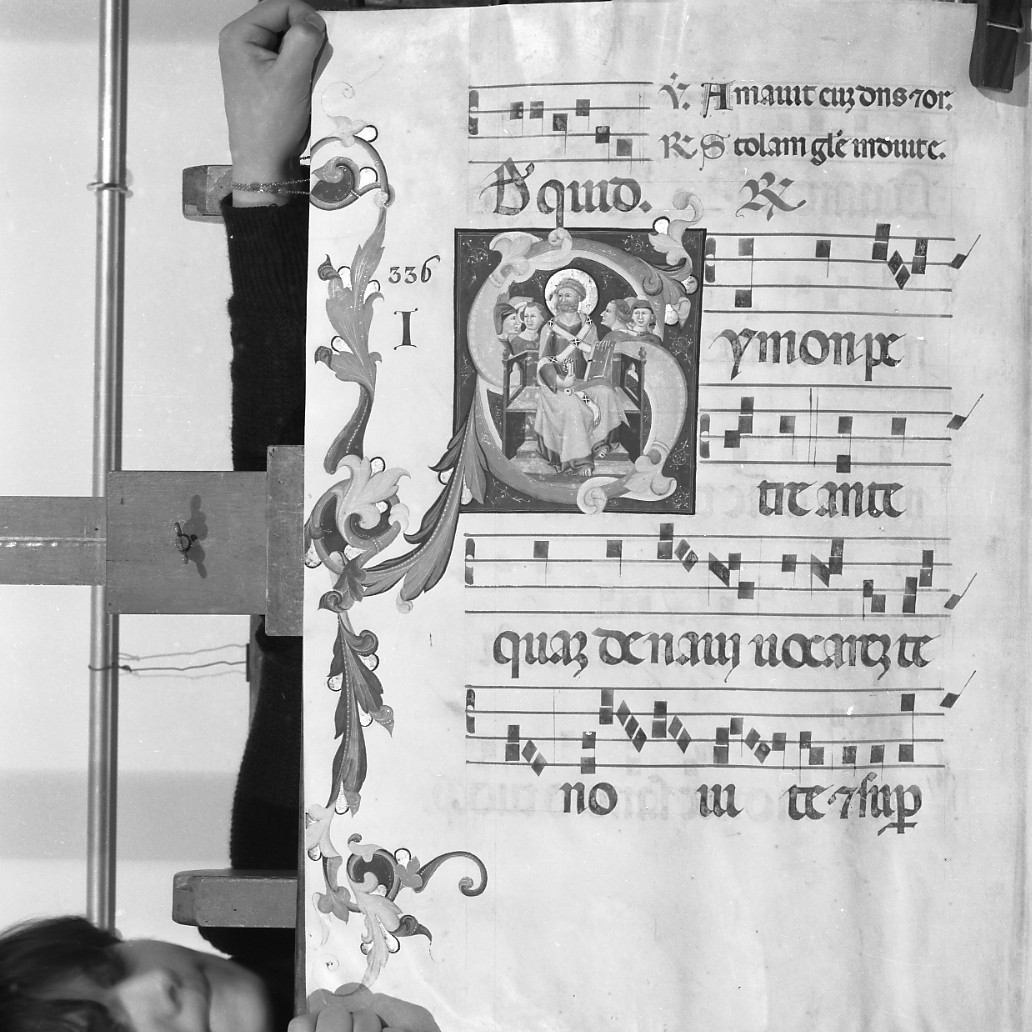 V. Amauit euz dns ⁊or.
R. Stolam gle induite.
Ad quid. R.
336
I
Symon pe
tre ante
quaz de naui uocarez te
no ui te ⁊ sup